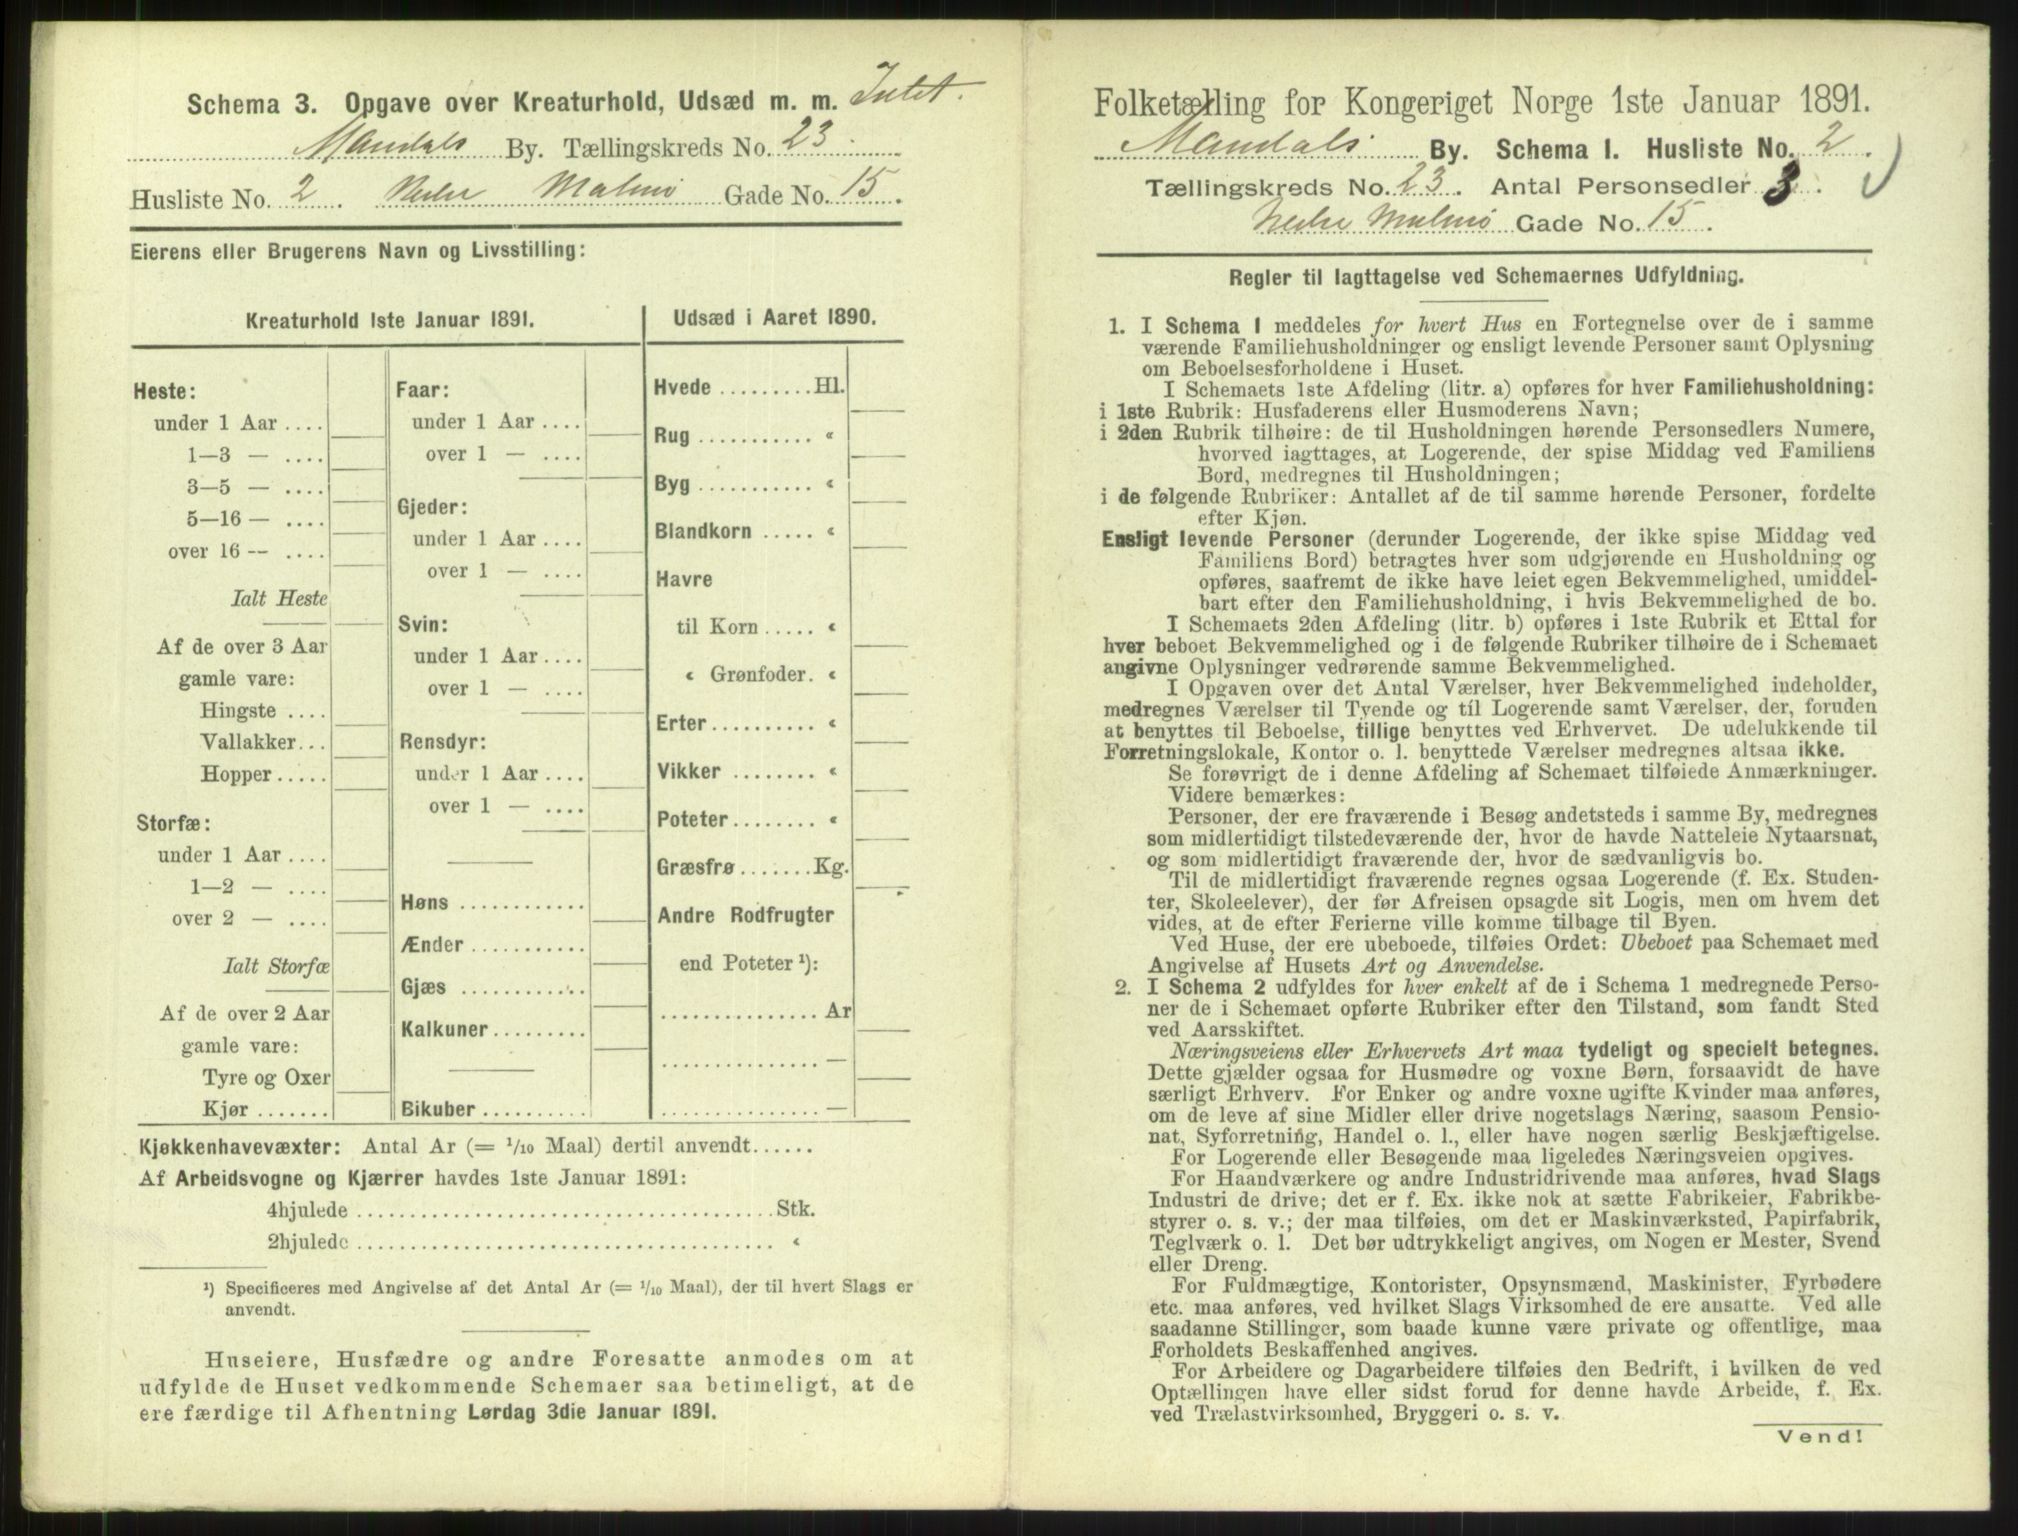 Schema 3. Opgave over Kreaturhold, Udsæd m. m. Intet.
Mandals By. Tællingskreds No. 23.
Husliste No. 2. Nedre Malmö Gade No. 15.
Eierens eller Brugerens Navn og Livsstilling:
Kreaturhold 1ste Januar 1891.
Heste:
under 1 Aar ....
1—3 — ....
3—5 — ....
5—16 — ....
over 16 — ....
Ialt Heste
Af de over 3 Aar
gamle vare:
Hingste ....
Vallakker...
Hopper.....
Storfæ:
under 1 Aar ....
1—2 — ....
over 2 — ....
Ialt Storfæ
Af de over 2 Aar
gamle vare:
Tyre og Oxer
Kjør .......
Faar:
under 1 Aar ....
over 1 — ....
Gjeder:
under 1 Aar ....
over 1 — ....
Svin:
under 1 Aar ....
over 1 — ....
Rensdyr:
under 1 Aar ....
over 1 — ....
Høns ............
Ænder ...........
Gjæs ............
Kalkuner.........
Bikuber ..........
Udsæd i Aaret 1890.
Hvede .........Hl.
Rug ........... «
Byg ........... «
Blandkorn ..... «
Havre
til Korn ..... «
« Grønfoder. «
Erter .......... «
Vikker ........ «
Poteter........ «
Græsfrø .......Kg.
Andre Rodfrugter
end Poteter ¹):
............... Ar
............... —
............... —
Kjøkkenhavevæxter: Antal Ar (= 1/10 Maal) dertil anvendt......
Af Arbeidsvogne og Kjærrer havdes 1ste Januar 1891:
4hjulede ........................................Stk.
2hjulede ........................................ «
¹) Specificeres med Angivelse af det Antal Ar (= 1/10 Maal), der til hvert Slags er
anvendt.
Huseiere, Husfædre og andre Foresatte anmodes om at
udfylde de Huset vedkommende Schemaer saa betimeligt, at de
ere færdige til Afhentning Lørdag 3die Januar 1891.
Folketælling for Kongeriget Norge 1ste Januar 1891.
Mandals By. Schema I. Husliste No. 2.
Tællingskreds No. 23. Antal Personsedler 3.
Nedre Malmö Gade No. 15.
Regler til Iagttagelse ved Schemaernes Udfyldning.
1. I Schema 1 meddeles for hvert Hus en Fortegnelse over de i samme
værende Familiehusholdninger og ensligt levende Personer samt Oplysning
om Beboelsesforholdene i Huset.
I Schemaets 1ste Afdeling (litr. a) opføres for hver Familiehusholdning:
i 1ste Rubrik: Husfaderens eller Husmoderens Navn;
i 2den Rubrik tilhøire: de til Husholdningen hørende Personsedlers Numere,
hvorved iagttages, at Logerende, der spise Middag ved Familiens
Bord, medregnes til Husholdningen;
i de følgende Rubriker: Antallet af de til samme hørende Personer, fordelte
efter Kjøn.
Ensligt levende Personer (derunder Logerende, der ikke spise Middag ved
Familiens Bord) betragtes hver som udgjørende en Husholdning og
opføres, saafremt de ikke have leiet egen Bekvemmelighed, umiddel-
bart efter den Familiehusholdning, i hvis Bekvemmelighed de bo.
I Schemaets 2den Afdeling (litr. b) opføres i 1ste Rubrik et Ettal for
hver beboet Bekvemmelighed og i de følgende Rubriker tilhøire de i Schemaet
angivne Oplysninger vedrørende samme Bekvemmelighed.
I Opgaven over det Antal Værelser, hver Bekvemmelighed indeholder,
medregnes Værelser til Tyende og til Logerende samt Værelser, der, foruden
at benyttes til Beboelse, tillige benyttes ved Erhvervet. De udelukkende til
Forretningslokale, Kontor o. l. benyttede Værelser medregnes altsaa ikke.
Se forøvrigt de i denne Afdeling af Schemaet tilføiede Anmærkninger.
Videre bemærkes:
Personer, der ere fraværende i Besøg andetsteds i samme By, medregnes
som midlertidigt tilstedeværende der, hvor de havde Natteleie Nytaarsnat,
og som midlertidigt fraværende der, hvor de sædvanligvis bo.
Til de midlertidigt fraværende regnes ogsaa Logerende (f. Ex. Studen-
ter, Skoleelever), der før Afreisen opsagde sit Logis, men om hvem det
vides, at de efter Ferierne ville komme tilbage til Byen.
Ved Huse, der ere ubeboede, tilføies Ordet: Ubeboet paa Schemaet med
Angivelse af Husets Art og Anvendelse.
2. I Schema 2 udfyldes for hver enkelt af de i Schema 1 medregnede Perso-
ner de i Schemaet opførte Rubriker efter den Tilstand, som fandt Sted
ved Aarsskiftet.
Næringsveiens eller Erhvervets Art maa tydeligt og specielt betegnes.
Dette gjælder ogsaa for Husmødre og voxne Børn, forsaavidt de have
særligt Erhverv. For Enker og andre voxne ugifte Kvinder maa anføres,
om de leve af sine Midler eller drive nogetslags Næring, saasom Pensio-
nat, Syforretning, Handel o. l., eller have nogen særlig Beskjæftigelse.
For Logerende eller Besøgende maa ligeledes Næringsveien opgives.
For Haandværkere og andre Industridrivende maa anføres, hvad Slags
Industri de drive; det er f. Ex. ikke nok at sætte Fabrikeier, Fabrikbe-
styrer o. s. v.; der maa tilføies, om det er Maskinværksted, Papirfabrik,
Teglværk o. l. Det bør udtrykkeligt angives, om Nogen er Mester, Svend
eller Dreng.
For Fuldmægtige, Kontorister, Opsynsmænd, Maskinister, Fyrbødere
etc. maa anføres, ved hvilket Slags Virksomhed de ere ansatte. Ved alle
saadanne Stillinger, som baade kunne være private og offentlige, maa
Forholdets Beskaffenhed angives.
For Arbeidere og Dagarbeidere tilføies den Bedrift, i hvilken de ved
Optællingen have eller sidst forud for denne havde Arbeide, f. Ex.
ved Trælastvirksomhed, Bryggeri o. s. v.
Vend!